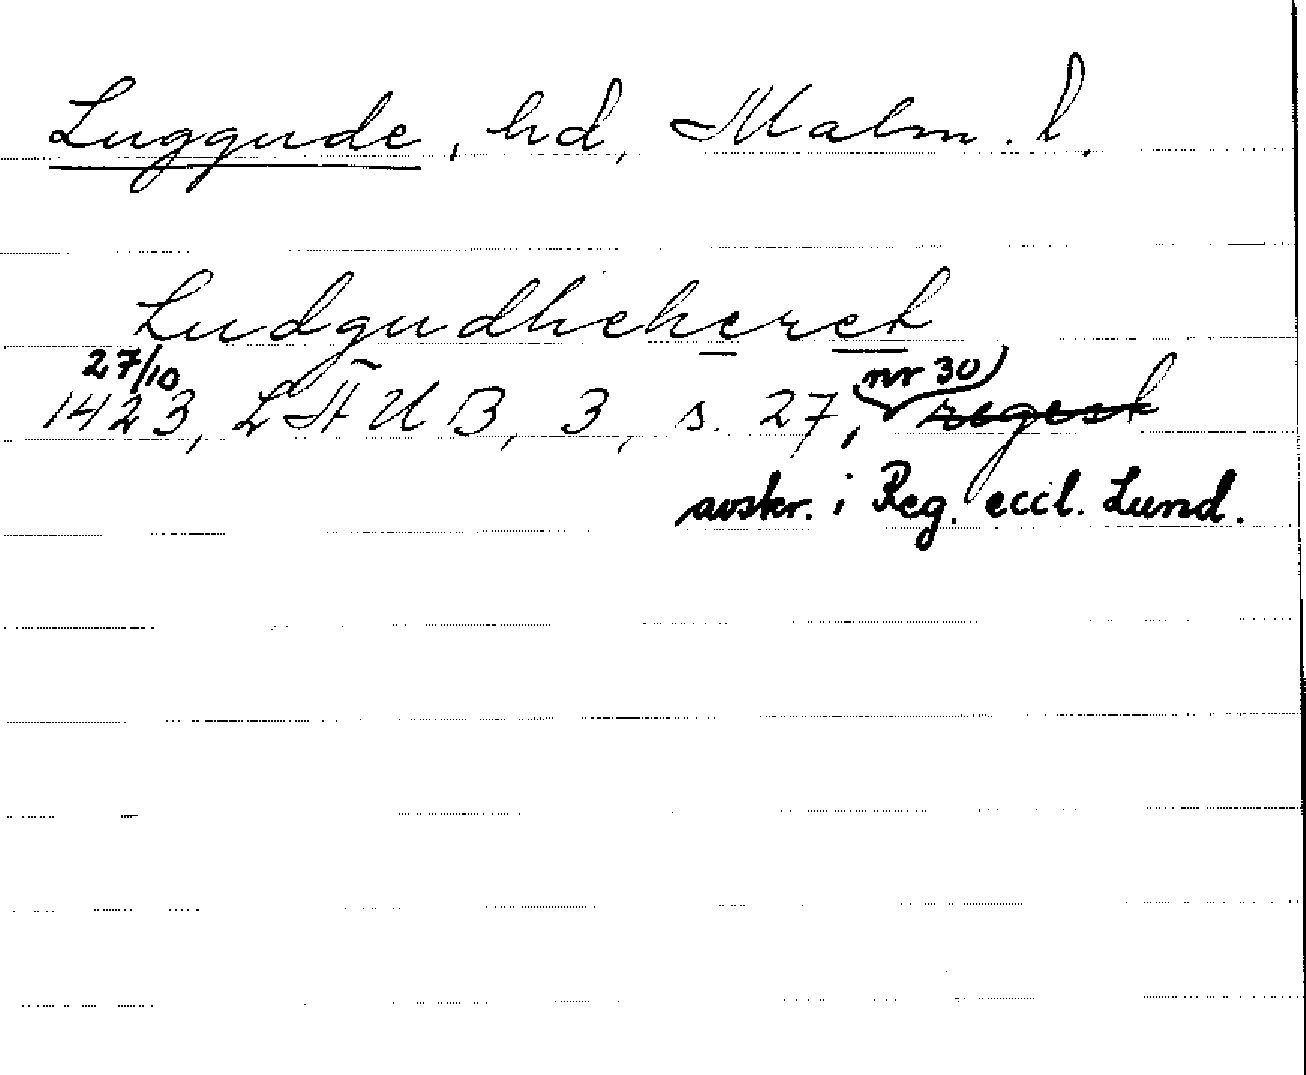 Luggude, hd, Malm. l.
Ludgudheheret
27/10
1423, LÄUB, 3, s. 27, nr 30, regest
avskr. i Reg. eccl. Lund.